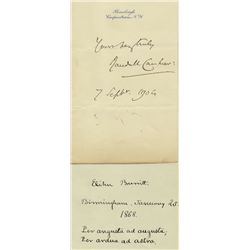 Yours very truly
Randall Cantuar:
7 Sept. 1904
Elihu Burritt.
Birmingham, January 28
1868.
Per angusta ad augusta,
Per ardua ad astra.